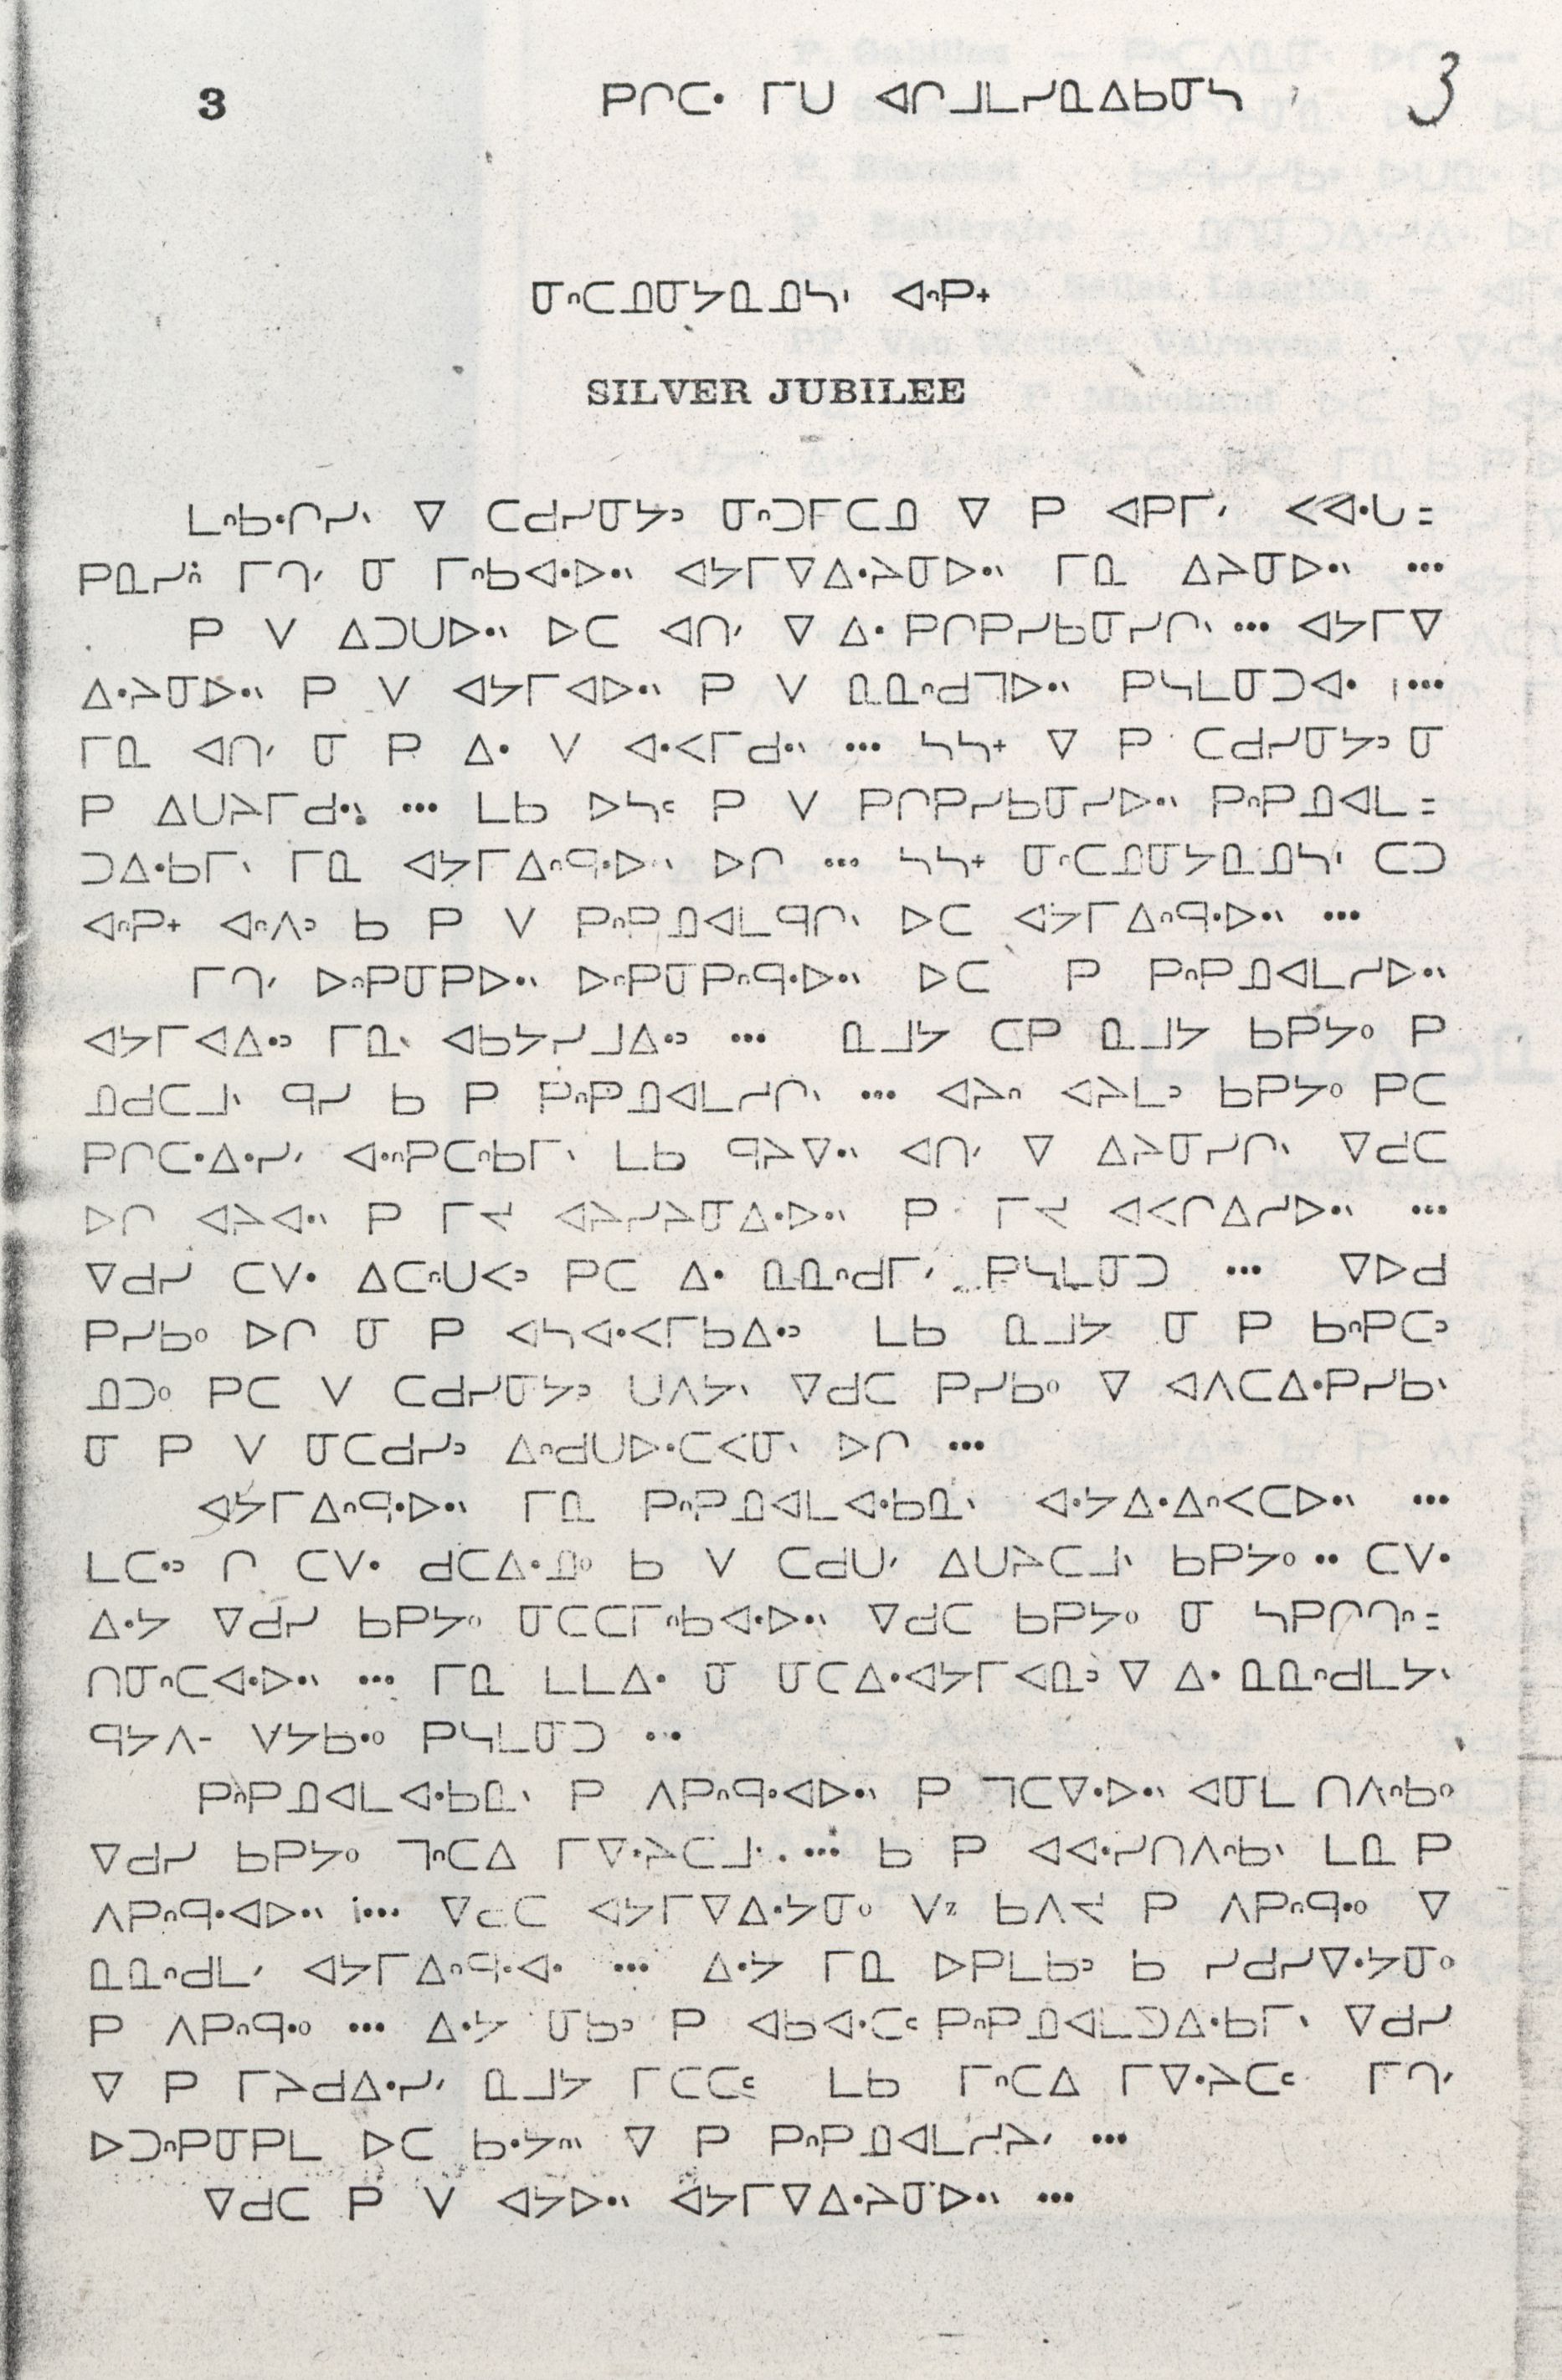 3 ᑭᒋᑕᐧ ᒥᑌ ᐊᒋᒧᒪᓯᓇᐃᑲᓂᓴ 3
ᓂᐢᑕᓄᓂᔭᓇᓄᓴᐠ ᐊᐢᑭᕀ
SILVER JUBILEE
ᒪᐢᑲᐧᒋᓯᐠ ᐁ ᑕᑯᓯᓂᔭᐣ ᓂᐢᑐᒥᑕᓄ ᐁ ᑭ ᐊᑭᒥᐟ ᐸᐊᐧᒐ =
ᑭᓇᓯᐢ ᒥᒉᐟ ᓂ ᒥᐢᑲᐊᐧᐅᐧᐠ ᐊᔭᒥᐁᐃᐧᔨᓂᐅᐧᐠ ᒥᓇ ᐃᔨᓂᐅᐧᐠ ...
ᑭ ᐯ ᐃᑐᑌᐅᐧᐠ ᐅᑕ ᐊᑎᐟ ᐁ ᐃᐧ ᑭᒋᑭᓯᑲᓂᓯᒋᐠ ... ᐊᔭᒥᐁ
ᐃᐧᔨᓂᐅᐧᐠ ᑭ ᐯ ᐊᔭᒥᐊᐅᐧᐠ ᑭ ᐯ ᓇᓇᐢᑯᒣᐅᐧᐠ ᑭᓴᒪᓂᑐᐊᐧ ...
ᒥᓇ ᐊᑎᐟ ᓂ ᑭ ᐃᐧ ᐯ ᐊᐧᐸᒥᑯᐧᐠ ... ᓴᓴᕀ ᐁ ᑭ ᑕᑯᓯᓂᔭᐣ ᓂ
ᑭ ᐃᑌᔨᒥᑯᐧᐠ ... ᒪᑲ ᐅᓴᒼ ᑭ ᐯ ᑭᒋᑭᓯᑲᓂᓯᐅᐧᐠ ᑭᐢᑭᓄᐊᒪ =
ᑐᐃᐧᑲᒥᐠ ᒥᓇ ᐊᔭᒥᐃᐢᑫᐧᐅᐧᐠ ᐅᒋ ... ᓴᓴᕀ ᓂᐢᑕᓄᓂᔭᓇᓄᓴᐠ ᑕᑐ
ᐊᐢᑭᕀ ᐊᐢᐱᐣ ᑲ ᑭ ᐯ ᑭᐢᑭᓄᐊᒪᑫᒋᐠ ᐅᑕ ᐊᔭᒥᐃᐢᑫᐧᐅᐧᐠ ...
ᒥᒉᐟ ᐅᐢᑭᓂᑭᐅᐧᐠ ᐅᐢᑭᓂᑭᐢᑫᐧᐅᐧᐠ ᐅᑕ ᑭ ᑭᐢᑭᓄᐊᒪᓱᐅᐧᐠ
ᐊᔭᒥᐊᐃᐧᐣ ᒥᓇ ᐊᑲᔭᓯᒧᐃᐧᐣ ... ᓇᒧᔭ ᑕᑭ ᓇᒧᔭ ᑲᑭᔭᐤ ᑭ
ᓄᑯᑕᒧᐠ ᑫᓯ ᑲ ᑭ ᑭᐢᑭᓄᐊᒪᓱᒋᐠ ... ᐊᔨᐢ ᐊᔨᒪᐣ ᑲᑭᔭᐤ ᑭᑕ
ᑭᒋᑕᐧᐃᐧᓯᐟ ᐊᐧᐢᑭᑕᐢᑲᒥᐠ ᒪᑲ ᑫᔨᐁᐧᐠ ᐊᑎᐟ ᐁ ᐃᔨᓂᓯᒋᐠ ᐁᑯᑕ
ᐅᒋ ᐊᔨᐊᐧᐠ ᑭ ᒥᔪ ᐊᔨᓯᔨᓂᐃᐧᐅᐧᐠ ᑭ ᒥᔪ ᐊᐸᒋᐃᓱᐅᐧᐠ ...
ᐁᑯᓯ ᑕᐯᐧ ᐃᑕᐢᑌᐸᐣ ᑭᑕ ᐃᐧ ᓇᓇᐢᑯᒥᐟ ᑭᓴᒪᓂᑐ ... ᐁᐅᑯ
ᑭᓯᑲᐤ ᐅᒋ ᓂ ᑭ ᐊᓴᐊᐧᐸᒥᑲᐃᐧᐣ ᒪᑲ ᓇᒧᔭ ᓂ ᑭ ᑲᐢᑭᑕᐣ
ᓄᑐᐤ ᑭᑕ ᐯ ᑕᑯᓯᓂᔭᐣ ᑌᐱᔭᐠ ᐁᑯᑕ ᑭᓯᑲᐤ ᐁ ᐊᐱᑕᐃᐧᑭᓯᑲᐠ
ᓂ ᑭ ᐯ ᓂᑕᑯᓯᐣ ᐃᐢᑯᑌᐅᐧᑕᐸᓂᐠ ᐅᒋ ...
ᐊᔭᒥᐃᐢᑫᐧᐅᐧᐠ ᒥᓇ ᑭᐢᑭᓄᐊᒪᐊᐧᑲᓇᐠ ᐊᐧᔭᐃᐧᐃᐢᐸᑕᐅᐧᐠ ...
ᒪᑕᐧᐣ ᒋ ᑕᐯᐧ ᑯᑕᐃᐧᓄᐤ ᑲ ᐯ ᑕᑯᑌᐟ ᐃᑌᔨᑕᒧᐠ ᑲᑭᔭᐤ .. ᑕᐯᐧ
ᐃᐧᔭ ᐁᑯᓯ ᑲᑭᔭᐤ ᓂᑕᑕᒥᐢᑲᐊᐧᐅᐧᐠ ᐁᑯᑕ ᑲᑭᔭᐤ ᓂ ᓴᑭᒋᒉᐢ =
ᑎᓂᐢᑕᐊᐧᐅᐧᐠ ... ᒥᓇ ᒪᒪᐃᐧ ᓂ ᓂᑕᐃᐧᐊᔭᒥᐊᓇᐣ ᐁ ᐃᐧ ᓇᓇᐢᑯᒪᔭᐠ
ᑫᔭᐱᐨ ᐯᔭᑲᐧᐤ ᑭᓴᒪᓂᑐ ...
ᑭᐢᑭᓄᐊᒪᐊᐧᑲᓇᐠ ᑭ ᐱᑭᐢᑫᐧᐊᐅᐧᐠ ᑭ ᒣᑕᐁᐧᐅᐧᐠ ᐊᓂᒪ ᑎᐱᐢᑲᐤ
ᐁᑯᓯ ᑲᑭᔭᐤ ᒣᐢᑕᐃ ᒥᐁᐧᔨᑕᒧᐠ ... ᑲ ᑭ ᐊᐊᐧᓯᑎᐱᐢᑲᐠ ᒪᓇ ᑭ
ᐱᑭᐢᑫᐧᐊᐅᐧᐠ ... ᐁᑯᑕ ᐊᔭᒥᐁᐃᐧᔭᓂᐤ ᑲᐱᔪ ᑭ ᐱᑭᐢᑫᐧᐤ ᐁ
ᓇᓇᐢᑯᒪᐟ ᐊᔭᒥᐃᐢᑫᐧᐊᐧ ... ᐃᐧᔭ ᒥᓇ ᐅᑭᒪᑲᐣ ᑲ ᓯᑯᓯᐁᐧᔭᓂᐤ
ᑭ ᐱᑭᐢᑫᐧᐤ ... ᐃᐧᔭ ᓂᑲᐣ ᑭ ᐊᑲᐊᐧᑕᒼ ᑭᐢᑭᓄᐊᒪᑐᐃᐧᑲᒥᐠ ᐁᑯᓯ
ᐁ ᑭ ᒥᔨᑯᐃᐧᓯᐟ ᓇᒧᔭ ᒥᑕᑕᒼ ᒪᑲ ᒥᐢᑕᐃ ᒥᐁᐧᔨᑕᒼ ᒥᒉᐟ
ᐅᑐᐢᑭᓂᑭᒪ ᐅᑕ ᑲᐧᔭᐢᐠ ᐁ ᑭ ᑭᐢᑭᓄᐊᒪᓱᔨᐟ ...
ᐁᑯᑕ ᑭ ᐯ ᐊᔭᐅᐧᐠ ᐊᔭᒥᐁᐃᐧᔨᓂᐅᐧᐠ ...